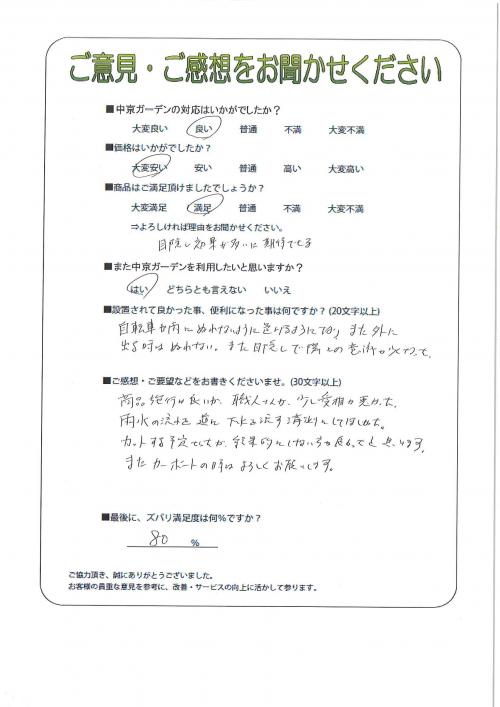 ご意見・ご感想をお聞かせください
■中京ガーデンの対応はいかがでしたか？
大変良い 良い 普通 不満 大変不満
■価格はいかがでしたか？
大変安い 安い 普通 高い 大変高い
■商品はご満足頂けましたでしょうか？
大変満足 満足 普通 不満 大変不満
⇒よろしければ理由をお聞かせください。
目隠し効果が多いに期待できる
■また中京ガーデンを利用したいと思いますか？
はい どちらとも言えない いいえ
■設置されて良かった事、便利になった事は何ですか？(20文字以上)
自転車が雨にぬれないように また外に
出る時はぬれない。また目隠しで隣との
■ご感想・ご要望などをお書きくださいませ。(30文字以上)
商品 は良いが、職人さんが、少し愛想が悪かった。
雨水の流れを 下水に流す
カットする予定でしたが、結果的に 良かったと思います。
またカーポートの時はよろしくお願いします。
■最後に、ズバリ満足度は何%ですか？
80 %
ご協力頂き、誠にありがとうございました。
お客様の貴重な意見を参考に、改善・サービスの向上に活かして参ります。